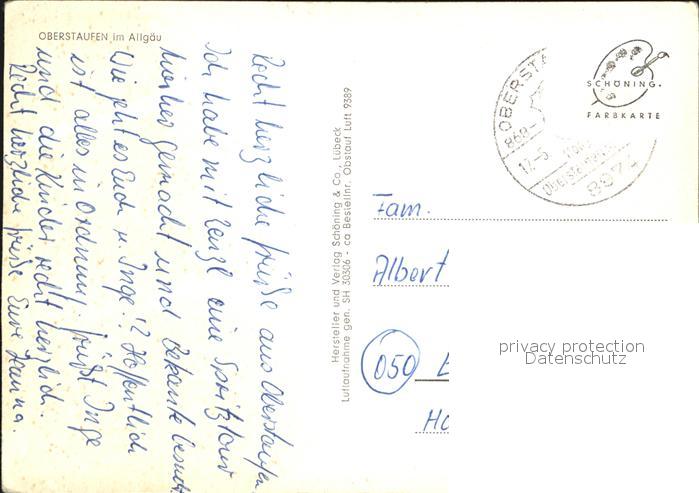 OBERSTAUFEN im Allgäu
Recht herzliche Grüße aus Oberstaufen.
Ich habe mit Zenzl eine Spritztour
hierher gemacht und Bekannte besucht
Wie geht es Euch u. Inge!? Hoffentlich
ist alles in Ordnung. Grüßt Inge
und die Kinder recht herzlich.
Recht herzliche Grüße Eure Hanna.
Hersteller und Verlag Schöning & Co., Lübeck
Luftaufnahme gen. SH 30306 - ca Bestellnr. Obstauf Luft 9389
SCHÖNING
FARBKARTE
OBERSTA
8974
Fam.
Albert
050
privacy protection
Datenschutz